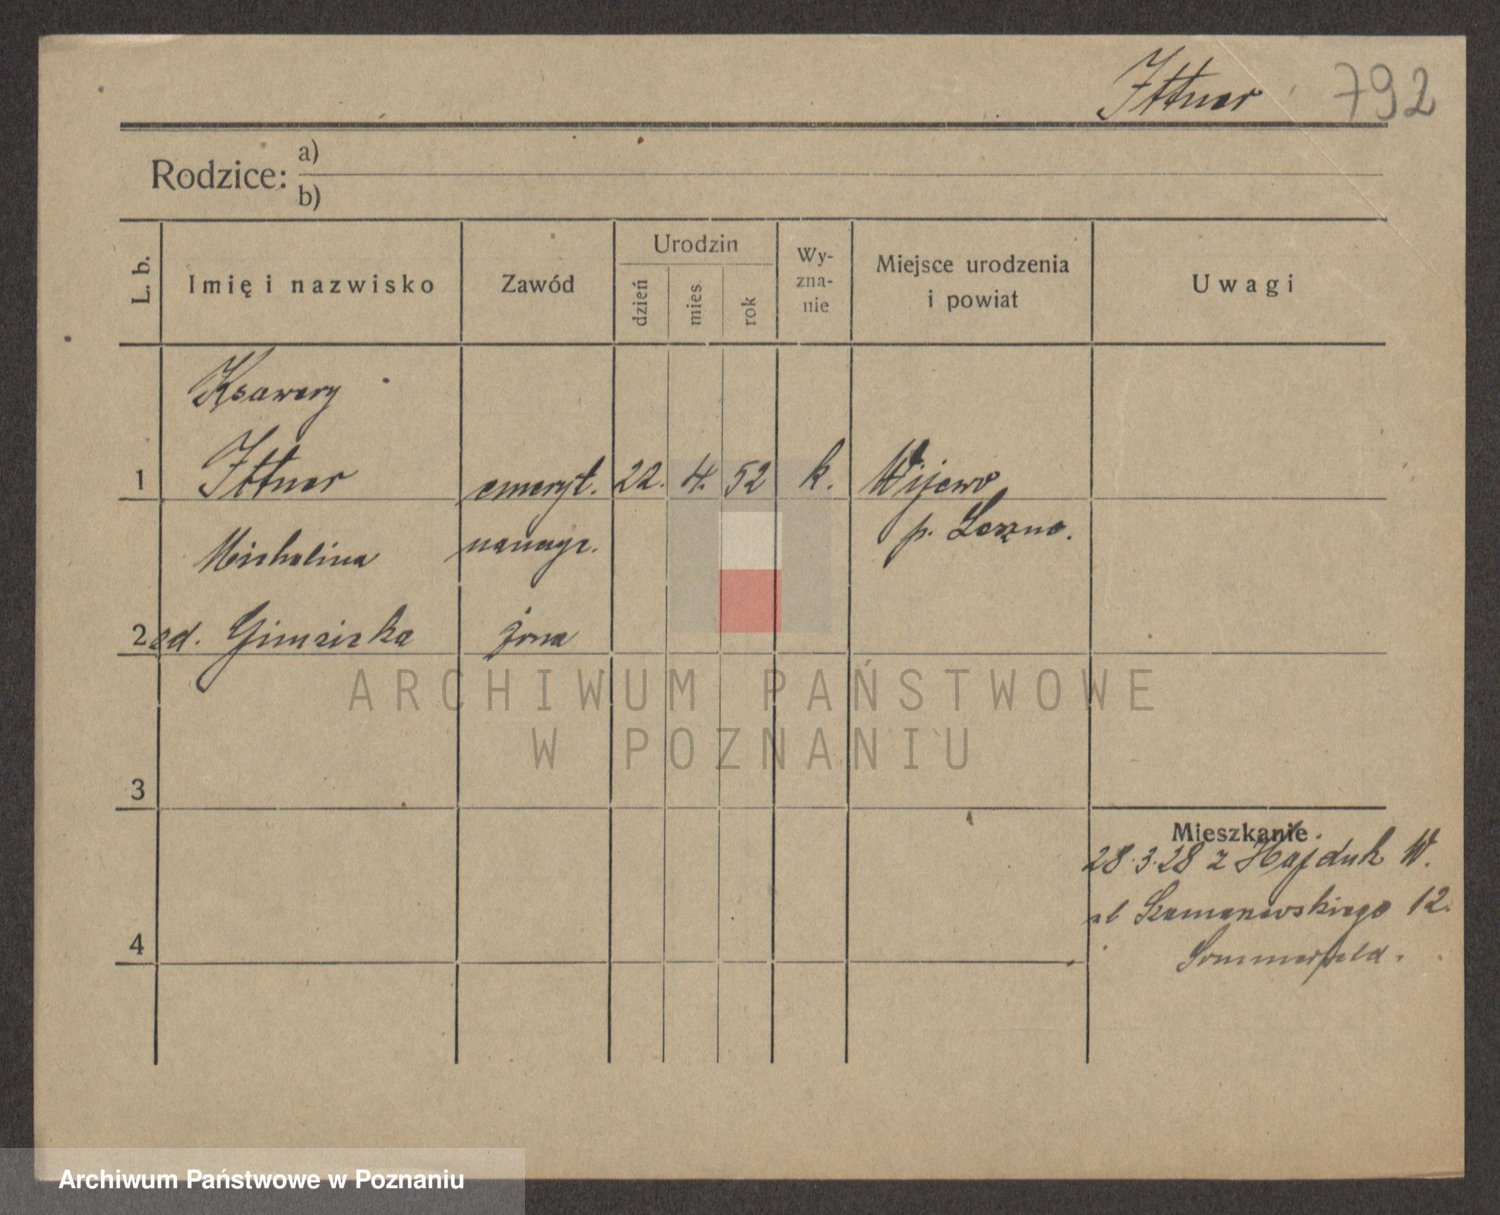 Ittner 792
Rodzice: a)
b)
L. b. Imię i nazwisko Zawód Urodzin dzień mies. rok Wy-zna-nie Miejsce urodzenia i powiat Uwagi
Ksawery
1 Ittner emeryt. 22. 4. 52 k. Wijewo
p. Leszno.
Michalina
2 zd. żona
ARCHIWUM PAŃSTWOWE
W POZNANIU
3
Mieszkanie
28.3.28 z Hajduk W.
12.
4
Sommerfeld.
Archiwum Państwowe w Poznaniu